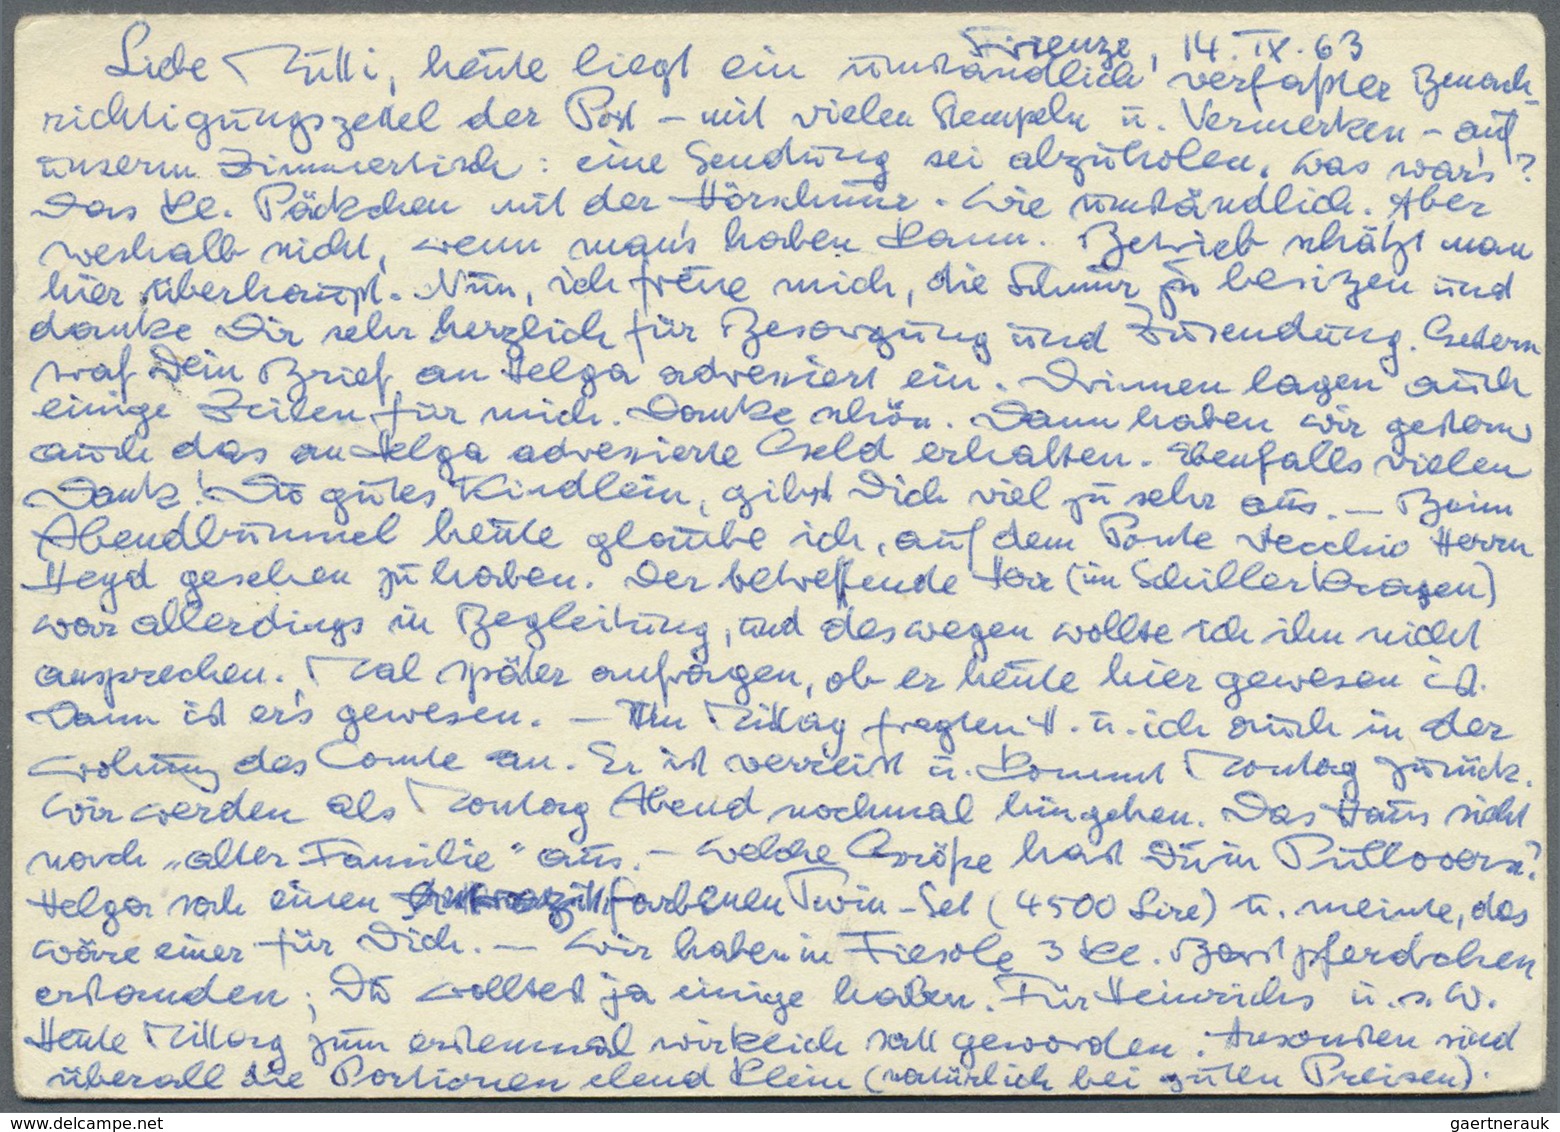 Firenze, 14. IX. 63
Liebe Mutti, heute liegt ein umständlich verfaßter Benach-
richtigungszettel der Post – mit vielen Stempeln u. Vermerken – auf
unserm Zimmertisch: eine Sendung sei abzuholen. Was war's?
Das kl. Päckchen mit der Hörschnur. Wie umständlich. Aber
weshalb nicht, wenn man's haben kann. Betrieb schätzt man
hier überhaupt. Nun, ich freue mich, die Schnur zu besitzen und
danke Dir sehr herzlich für Besorgung und Zusendung. Gestern
traf Dein Brief an Helga adressiert ein. Drinnen lagen auch
einige Zeilen für mich. Danke schön. Dann haben wir gestern
auch das an Helga adressierte Geld erhalten. Ebenfalls vielen
Dank! Du gutes Kindlein, gibst Dich viel zu sehr aus. – Beim
Abendbummel heute glaube ich, auf dem Ponte Vecchio Herrn
Heyd gesehen zu haben. Der betreffende Herr (im Schillerkragen)
war allerdings in Begleitung, und deswegen wollte ich ihn nicht
ansprechen. Mal später anfragen, ob er heute hier gewesen ist.
Dann ist er's gewesen. – Am Mittag fragten H. u. ich auch in der
Wohnung des Comte an. Er ist verreist u. kommt Montag zurück.
Wir werden als Montag Abend nochmal hingehen. Das Haus sieht
nach „alter Familie" aus. – Welche Größe hast Du in Pullovern?
Helga sah einen farbenen Twin-Set (4500 Lire) u. meinte, das
wäre einer für Dich. – Wir haben in Fiesole 3 kl. Bastpferdchen
erstanden; Du wolltest ja einige haben. Für Heinrichs u.s.w.
Heute Mittag zum erstenmal wirklich satt geworden. Ansonsten sind
überall die Portionen elend klein (natürlich bei guten Preisen).
gaertnerauk.com